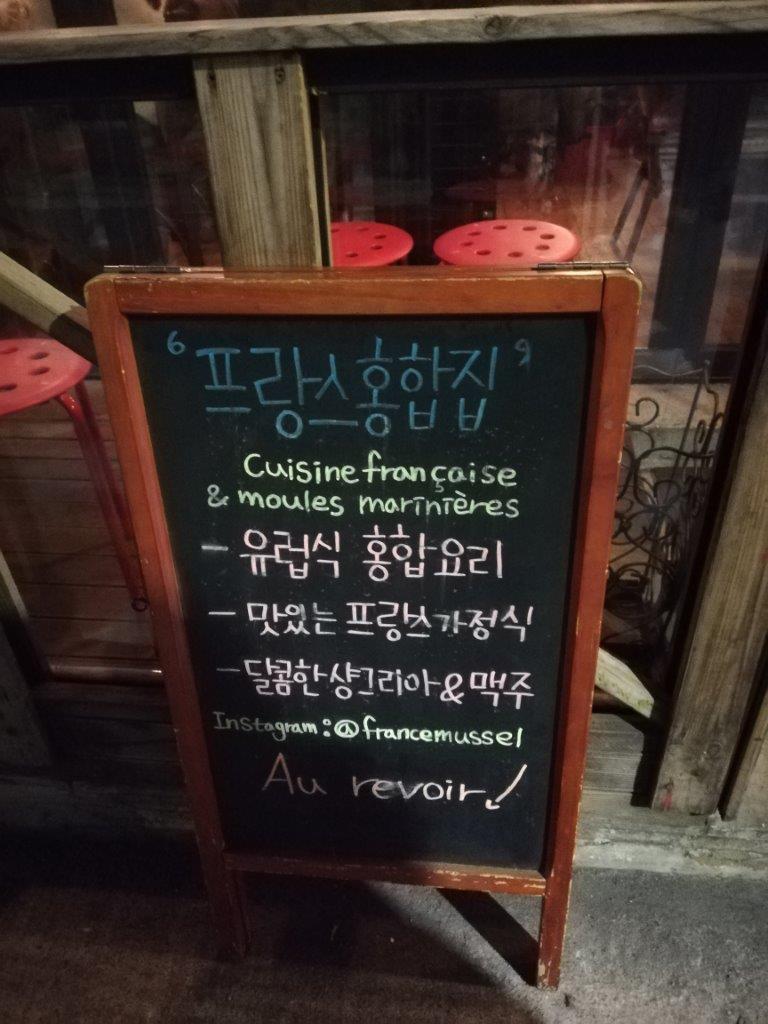 ‘프랑스홍합집’
Cuisine française
& moules marinières
- 유럽식 홍합요리
- 맛있는 프랑스가정식
- 달콤한 샹그리아&맥주
Instagram:@francemussel
Au revoir!